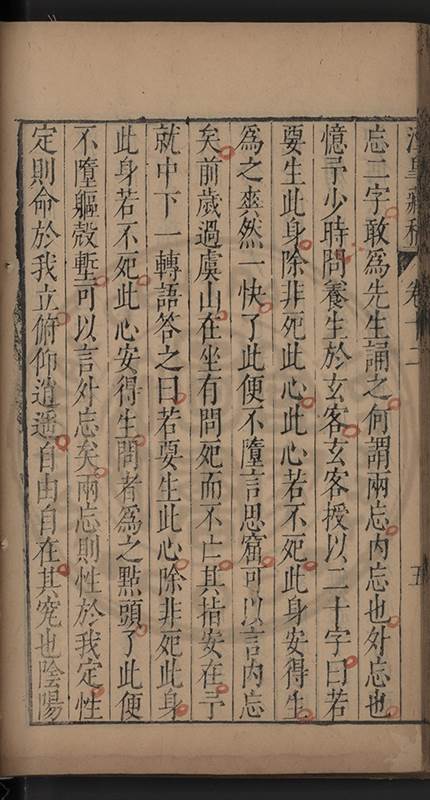 忘二字敢爲先生誦之何謂兩忘内忘也外忘也
憶予少時問養生於玄客玄客授以二十字曰若
要生此身除非死此心此心若不死此身安得生
爲之爽然一快了此便不墮言思窟可以言内忘
矣前歲過虞山在坐有問死而不亡其指安在予
就中下一轉語答之曰若要生此心除非死此身
此身若不死此心安得生問者爲之點頭了此便
不墮軀殻塹可以言外忘矣兩忘則性於我定性
定則命於我立俯仰逍遥自由自在其究也陰陽
藏稿 卷十二 五